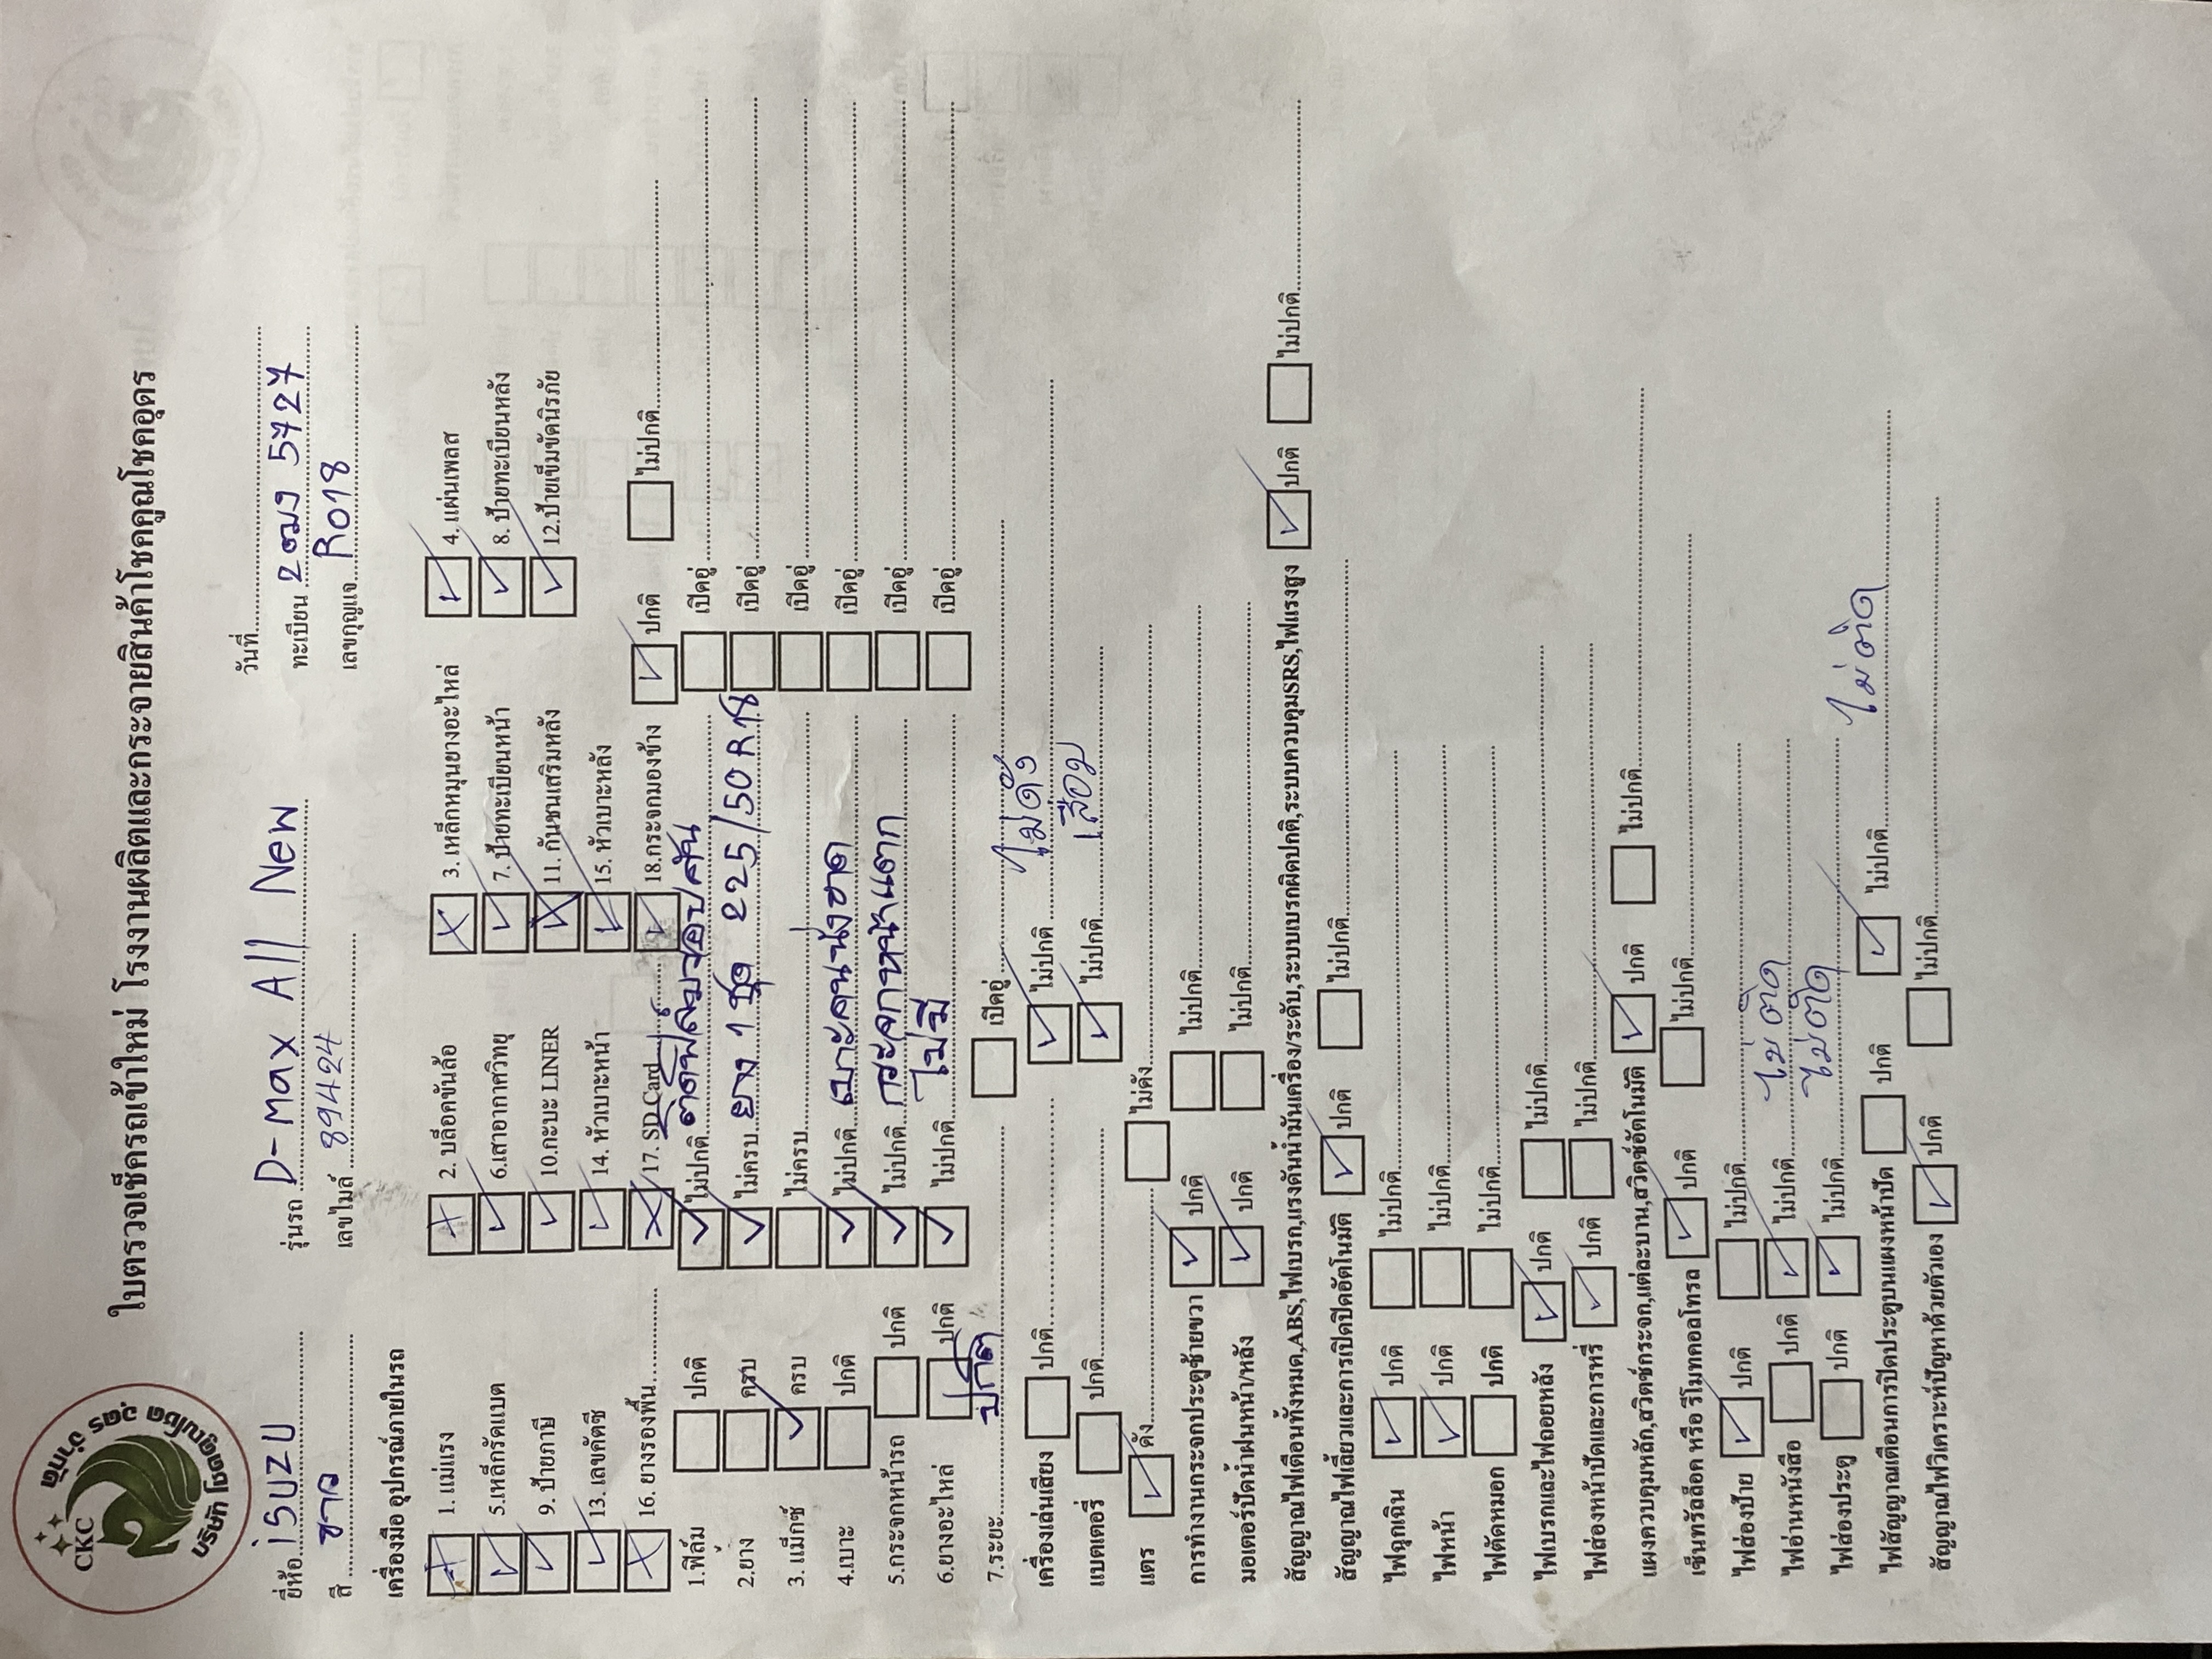 บริษัท โชคคูณโชค อุดร จำกัด
CKC
ใบตรวจเช็ครถเข้าใหม่ โรงงานผลิตและกระจายสินค้าโชคคูณโชคอุดร
วันที่
ยี่ห้อ iSUZU รุ่นรถ D-Max All New ทะเบียน 2ฒง 5727
สี ขาว เลขไมล์ 89424 เลขกุญแจ R018
เครื่องมือ อุปกรณ์ภายในรถ
1. แม่แรง 2. บล็อคขันล้อ 3. เหล็กหมุนยางอะไหล่ 4. แผ่นเพลส
5.เหล็กรัดแบต 6.เสาอากาศวิทยุ 7. ป้ายทะเบียนหน้า 8. ป้ายทะเบียนหลัง
9. ป้ายภาษี 10.กะบะ LINER 11. กันชนเสริมหลัง 12.ป้ายเข็มขัดนิรภัย
13. เลขคัตซี 14. หัวเบาะหน้า 15. หัวเบาะหลัง
16. ยางรองพื้น 17. SD Card 18.กระจกมองข้าง ปกติ ไม่ปกติ
1.ฟิล์ม ปกติ ไม่ปกติ ติดฟิล์มรอบคัน เปิดอยู่
2.ยาง ครบ ไม่ครบ ยาง 1 ชุด 225/50 R18 เปิดอยู่
3. แม็กซ์ ครบ ไม่ครบ เปิดอยู่
4.เบาะ ปกติ ไม่ปกติ เบาะคนนั่งขาด เปิดอยู่
5.กระจกหน้ารถ ปกติ ไม่ปกติ กระจกหน้าแตก เปิดอยู่
6.ยางอะไหล่ ปกติ ไม่ปกติ ไม่มี เปิดอยู่
7.ระยะ ปกติ เปิดอยู่
เครื่องเล่นเสียง ปกติ ไม่ปกติ ไม่ดัง
แบตเตอรี่ ปกติ ไม่ปกติ เสื่อม
แตร ดัง ไม่ดัง
การทำงานกระจกประตูซ้ายขวา ปกติ ไม่ปกติ
มอเตอร์ปัดน้ำฝนหน้า/หลัง ปกติ ไม่ปกติ
สัญญาณไฟเตือนทั้งหมด,ABS,ไฟเบรก,แรงดันน้ำมันเครื่อง/ระดับ,ระบบเบรกผิดปกติ,ระบบควบคุมSRS,ไฟแรงสูง ปกติ ไม่ปกติ
สัญญาณไฟเลี้ยวและการเปิดปิดอัตโนมัติ ปกติ ไม่ปกติ
ไฟฉุกเฉิน ปกติ ไม่ปกติ
ไฟหน้า ปกติ ไม่ปกติ
ไฟตัดหมอก ปกติ ไม่ปกติ
ไฟเบรกและไฟถอยหลัง ปกติ ไม่ปกติ
ไฟส่องหน้าปัดและการหรี่ ปกติ ไม่ปกติ
แผงควบคุมหลัก,สวิตช์กระจก,แต่ละบาน,สวิตช์อัตโนมัติ ปกติ ไม่ปกติ
เซ็นทรัลล็อค หรือ รีโมทคอลโทรล ปกติ ไม่ปกติ
ไฟส่องป้าย ปกติ ไม่ปกติ
ไฟอ่านหนังสือ ปกติ ไม่ปกติ ไม่ติด
ไฟส่องประตู ปกติ ไม่ปกติ ไม่ติด
ไฟสัญญาณเตือนการปิดประตูบนแผงหน้าปัด ปกติ ไม่ปกติ ไม่ติด
สัญญาณไฟวิเคราะห์ปัญหาด้วยตัวเอง ปกติ ไม่ปกติ